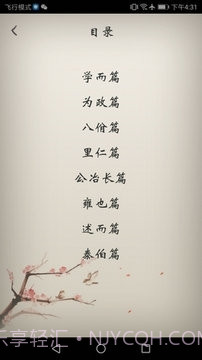 飞行模式
下午4:31
目录
学而篇
为政篇
八佾篇
里仁篇
公冶长篇
雍也篇
述而篇
泰伯篇
乐享轻汇·NJYCQH.COM